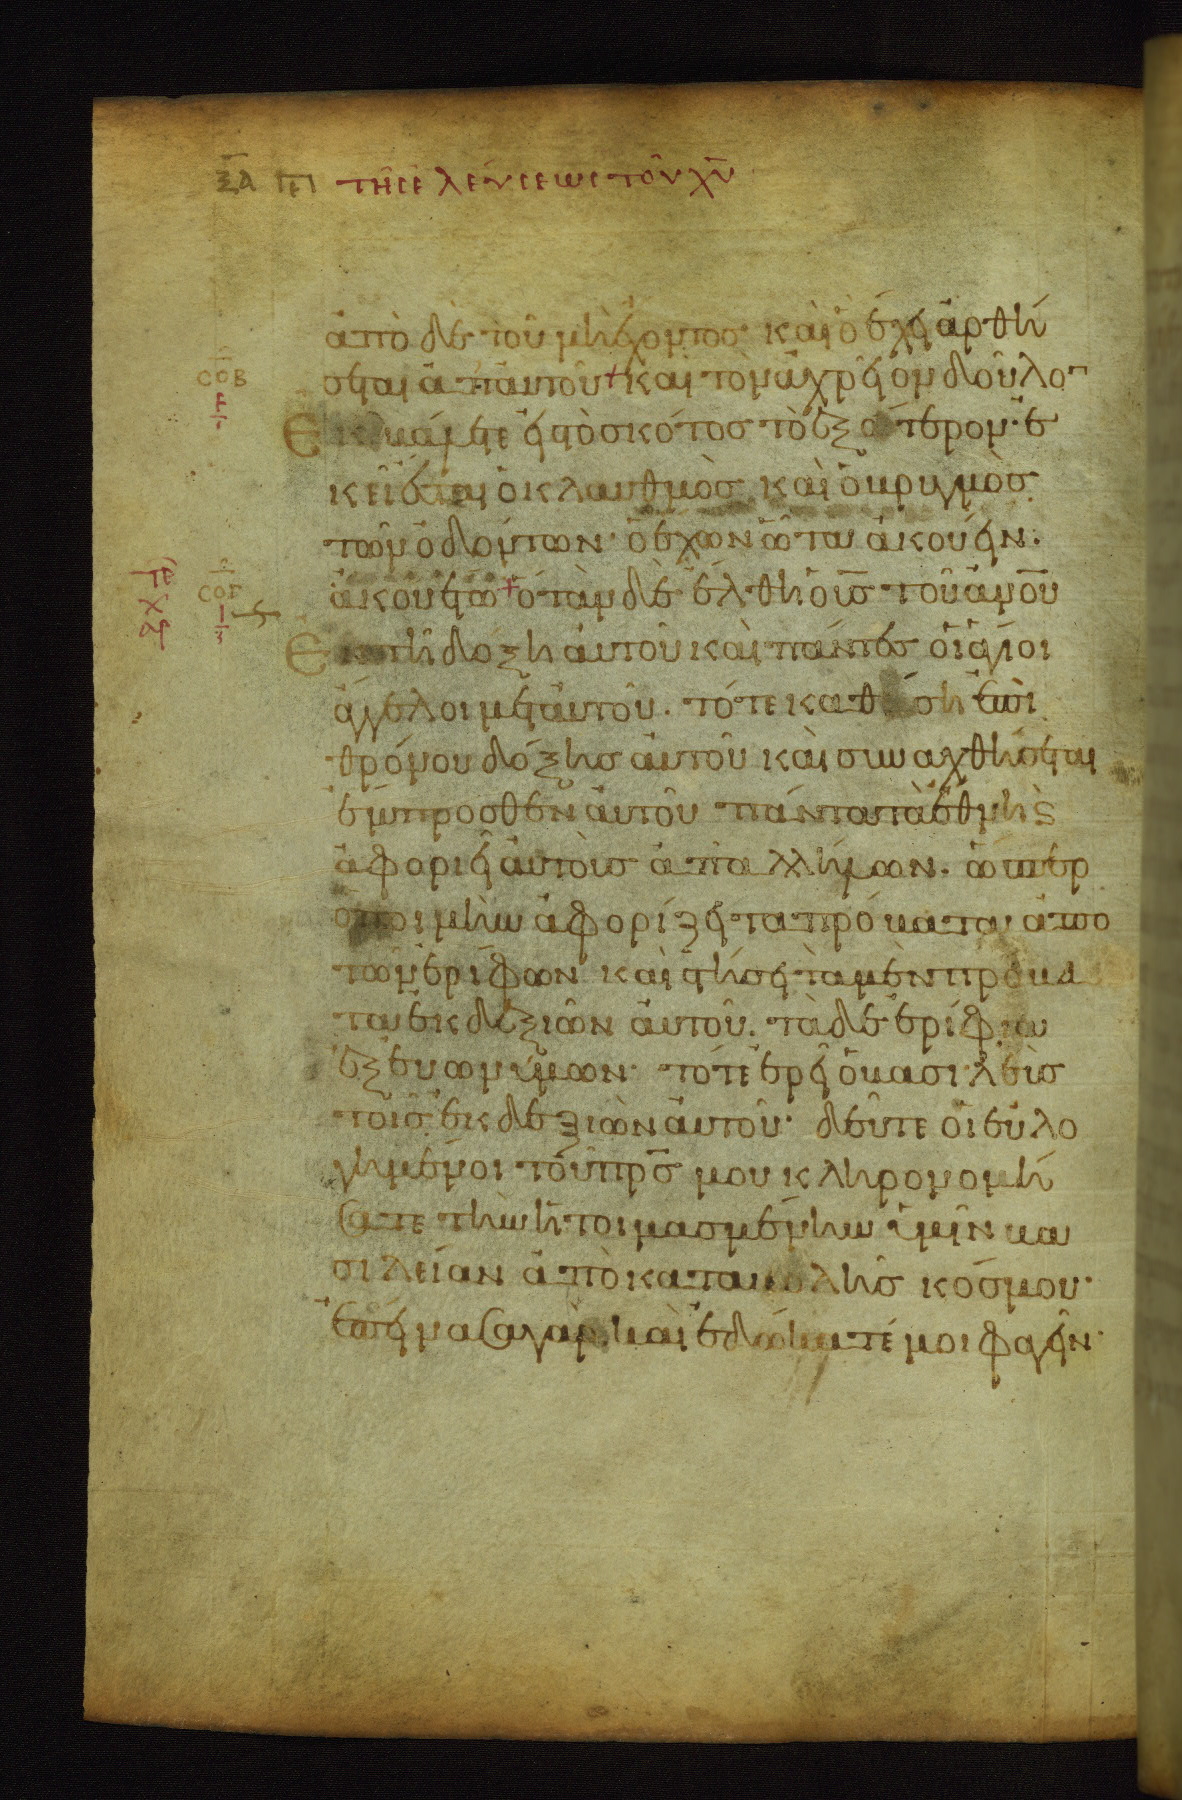 ξα περι της ελευσεως του χυ
ἀπὸ δὲ τοῦ μὴ ἔχοντος καὶ ὃ ἔχει ἀρθή
σεται ἀπ αυτοῦ + καὶ τὸν ἀχρεῖον δοῦλον
σοβ
ε
Ἐκβάλετε εἰς τὸ σκότος τὸ ἐξώτερον· ἐ
κεῖ ἔσται ὁ κλαυθμὸς καὶ ὁ βρυγμὸς
τῶν ὀδόντων· ὁ ἔχων ὦτα ἀκούειν·
ἀκουέτω + ὅταν δὲ ἔλθη ὁ ις τοῦ ανου
σογ
ι
αρ
Ἐν τῆ δόξη αὐτοῦ καὶ πάντες οἱ ἅγιοι
ἄγγελοι μετ αὐτοῦ. τότε καθίση ἐπὶ
θρόνου δόξης αὐτοῦ καὶ συναχθήσεται
ἔμπροσθεν αὐτοῦ πάντα τὰ ἔθνη καὶ
ἀφοριεῖ αὐτοὺς ἀπ αλλήλων. ὥσπερ
ὁ ποιμὴν ἀφορίζει τὰ πρόβατα ἀπο
τῶν ἐρίφων καὶ στήσει τὰ μὲν πρόβα
τα ἐκ δεξιῶν αὐτοῦ. τὰ δὲ ἐρίφια
ἐξ ευωνύμων· τότε ἐρεῖ ὁ βασιλεὺς
τοῖς ἐκ δεξιῶν αὐτοῦ· δεῦτε οἱ εὐλο
γημένοι τοῦ πρς μου κληρονομή
σατε τὴν ἡτοιμασμένην ὑμῖν βα
σιλείαν ἀπὸ καταβολῆς κόσμου·
ἐπείνασα γὰρ. καὶ ἐδώκατέ μοι φαγεῖν·